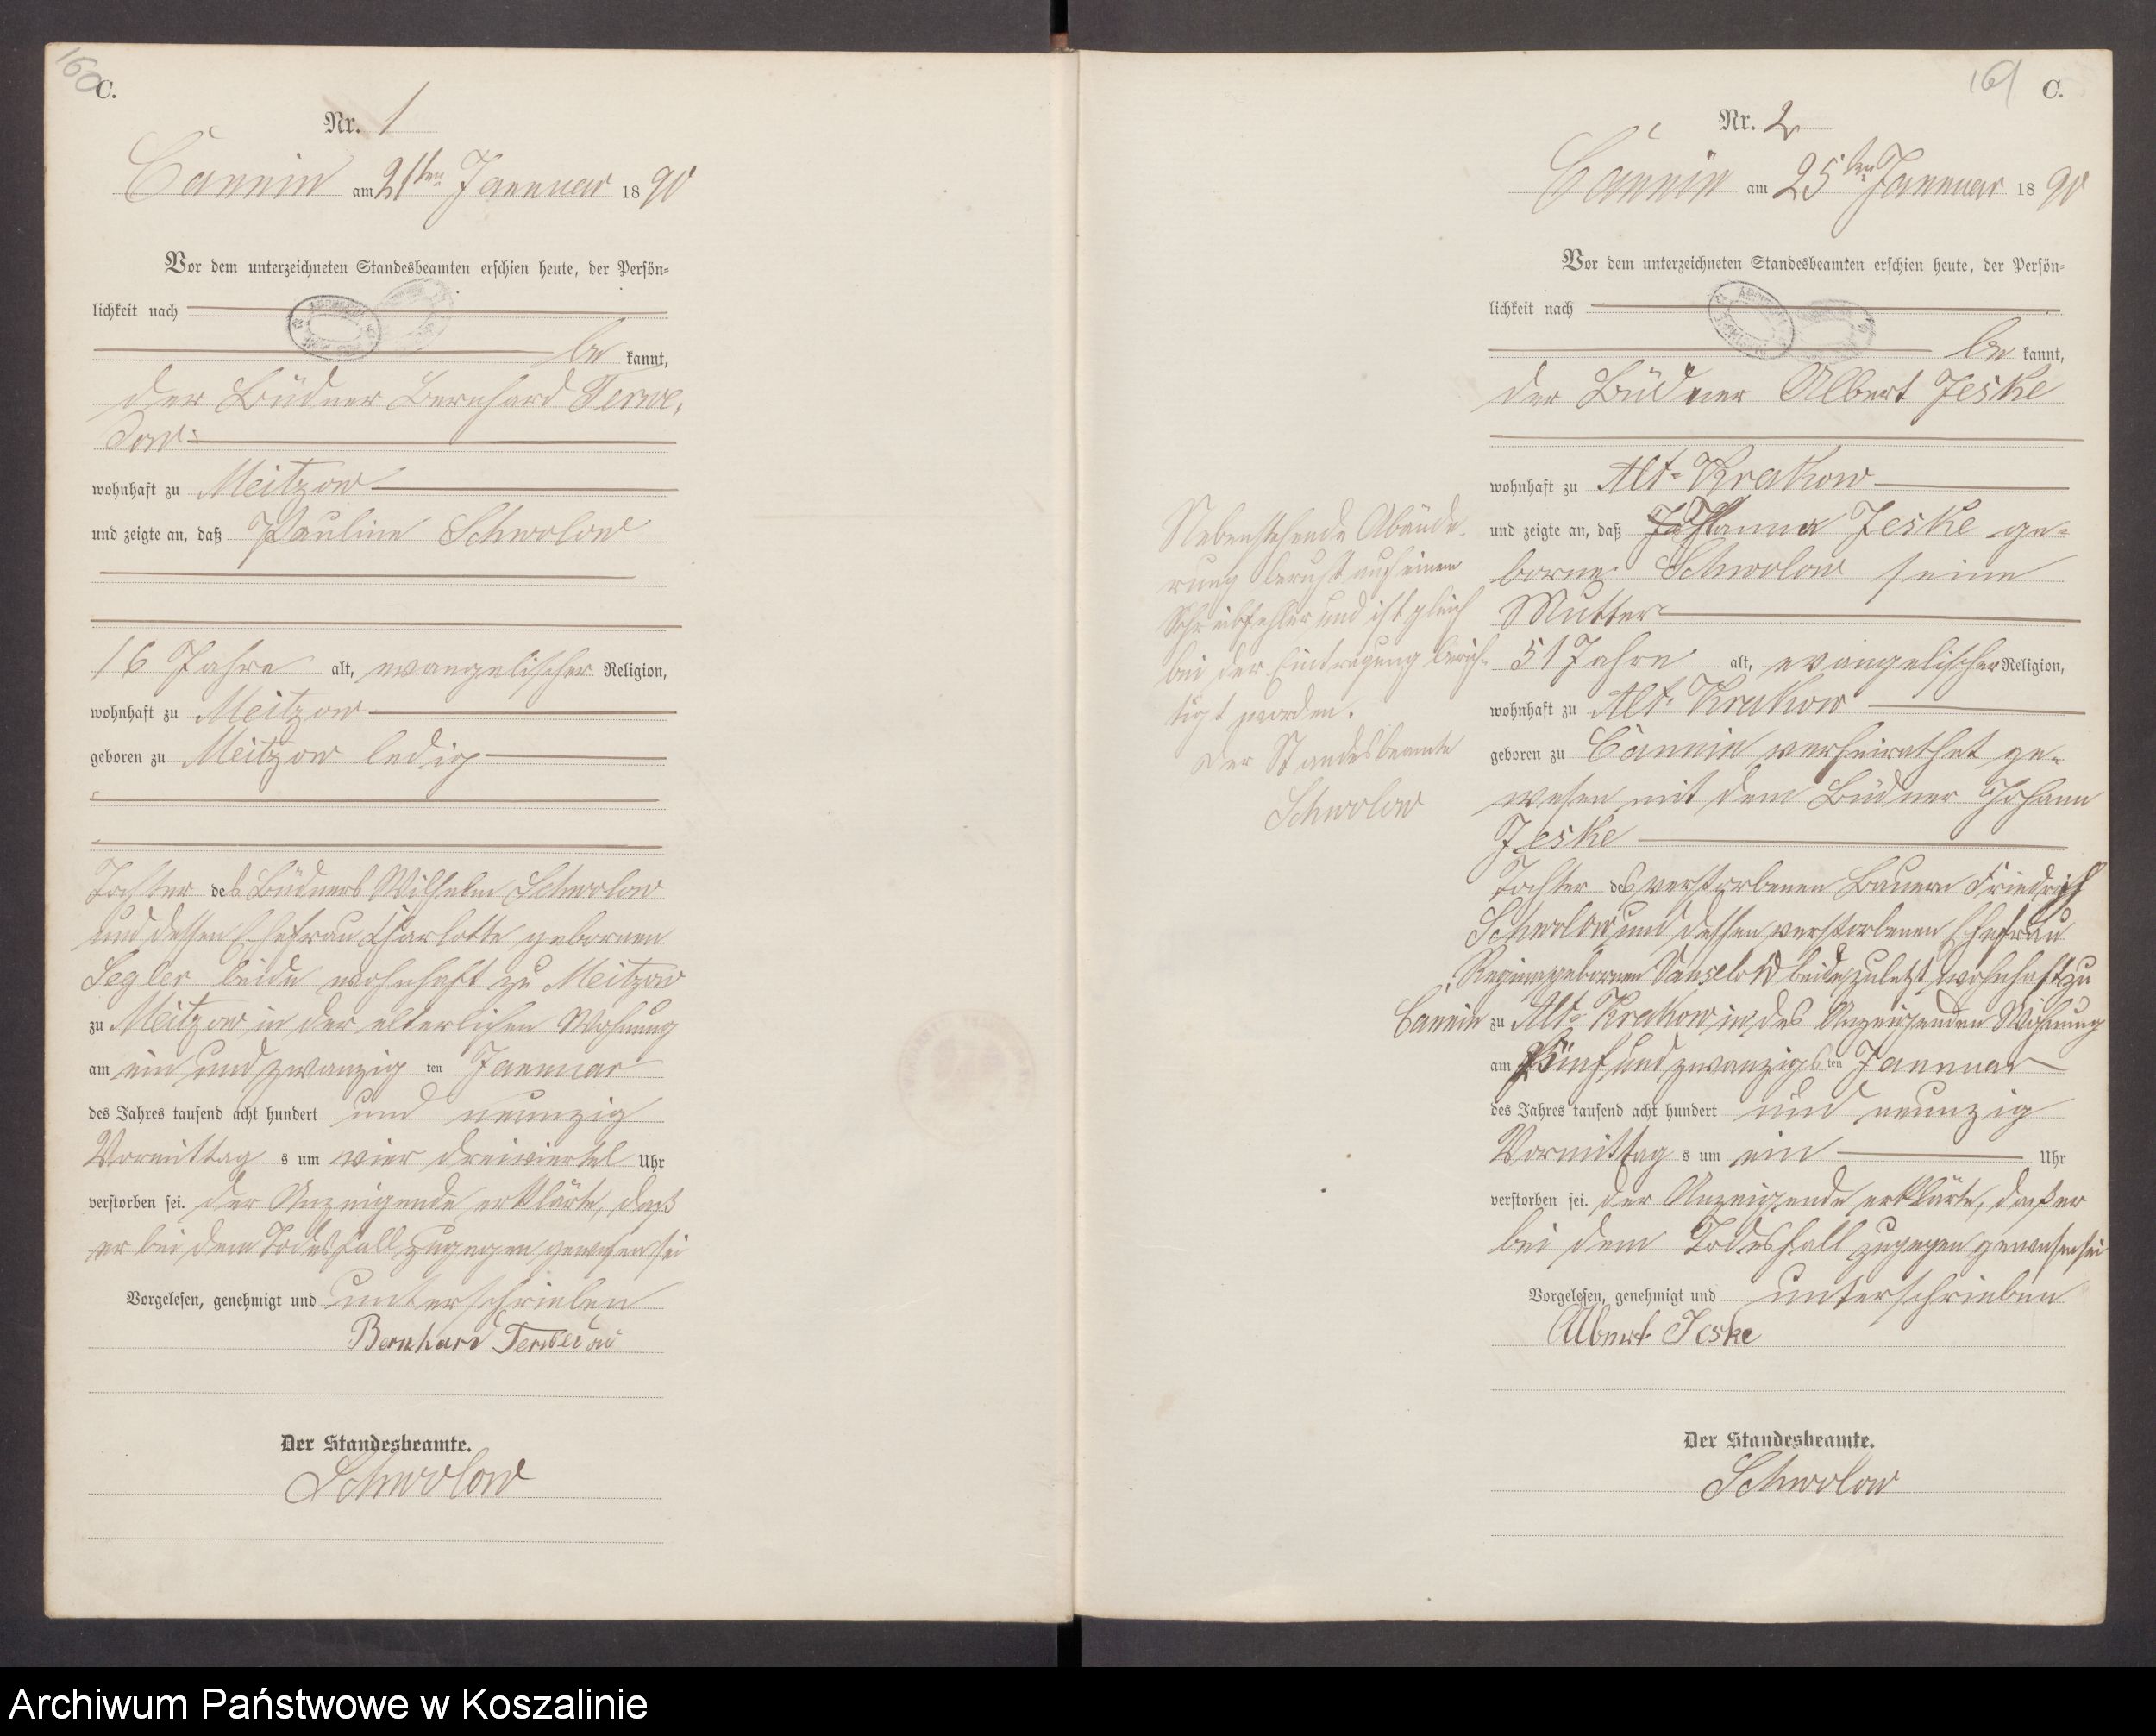 160
C.
Nr. 1
Cannin am 21ten Januar 1890
Vor dem unterzeichneten Standesbeamten erschien heute, der Persön-
lichkeit nach
be kannt,
der Büdner Bernhard Terve-
dow
wohnhaft zu Meitzow
und zeigte an, daß Pauline Schwolow
16 Jahre alt, evangelischer Religion,
wohnhaft zu Meitzow
geboren zu Meitzow ledig
Tochter des Büdners Wilhelm Schwolow
und dessen Ehefrau Charlotte gebornen
Segler beide wohnhaft zu Meitzow
zu Meitzow in der elterlichen Wohnung
am ein und zwanzig ten Januar
des Jahres tausend acht hundert und neunzig
Vormittag s um vier dreiviertel Uhr
verstorben sei. Der Anzeigende erklärte, daß
er bei dem Todesfall zugegen gewesen sei
Vorgelesen, genehmigt und unterschrieben
Bernhard
Der Standesbeamte.
Schwolow
161
C.
Nr. 2
Cannin am 25ten Januar 1890
Vor dem unterzeichneten Standesbeamten erschien heute, der Persön-
lichkeit nach
be kannt,
der Büdner Albert Jeske
wohnhaft zu Alt-Krakow
und zeigte an, daß Hanna Jeske ge-
borne Schwolow seine
Mutter
51 Jahre alt, evangelischer Religion,
wohnhaft zu Alt-Krakow
geboren zu Cannin verheirathet ge-
wesen mit dem Büdner Johann
Jeske
Tochter des verstorbenen Bauern Friedrich
Schwolow und dessen verstorbenen Ehefrau
Regina gebornen beide zuletzt wohnhaft zu
Cannin zu Alt-Krakow in des Anzeigenden Wohnung
am fünf und zwanzigs ten Januar
des Jahres tausend acht hundert und neunzig
Vormittag s um ein Uhr
verstorben sei. Der Anzeigende erklärte, daß er
bei dem Todesfall zugegen gewesen sei
Vorgelesen, genehmigt und unterschrieben
Albert Jeske
Der Standesbeamte.
Schwolow
Nebenstehende Abände-
rung beruht auf einem
Schreibfehler und ist gleich
bei der Eintragung berich-
tigt worden.
Der Standesbeamte
Schwolow
Archiwum Państwowe w Koszalinie